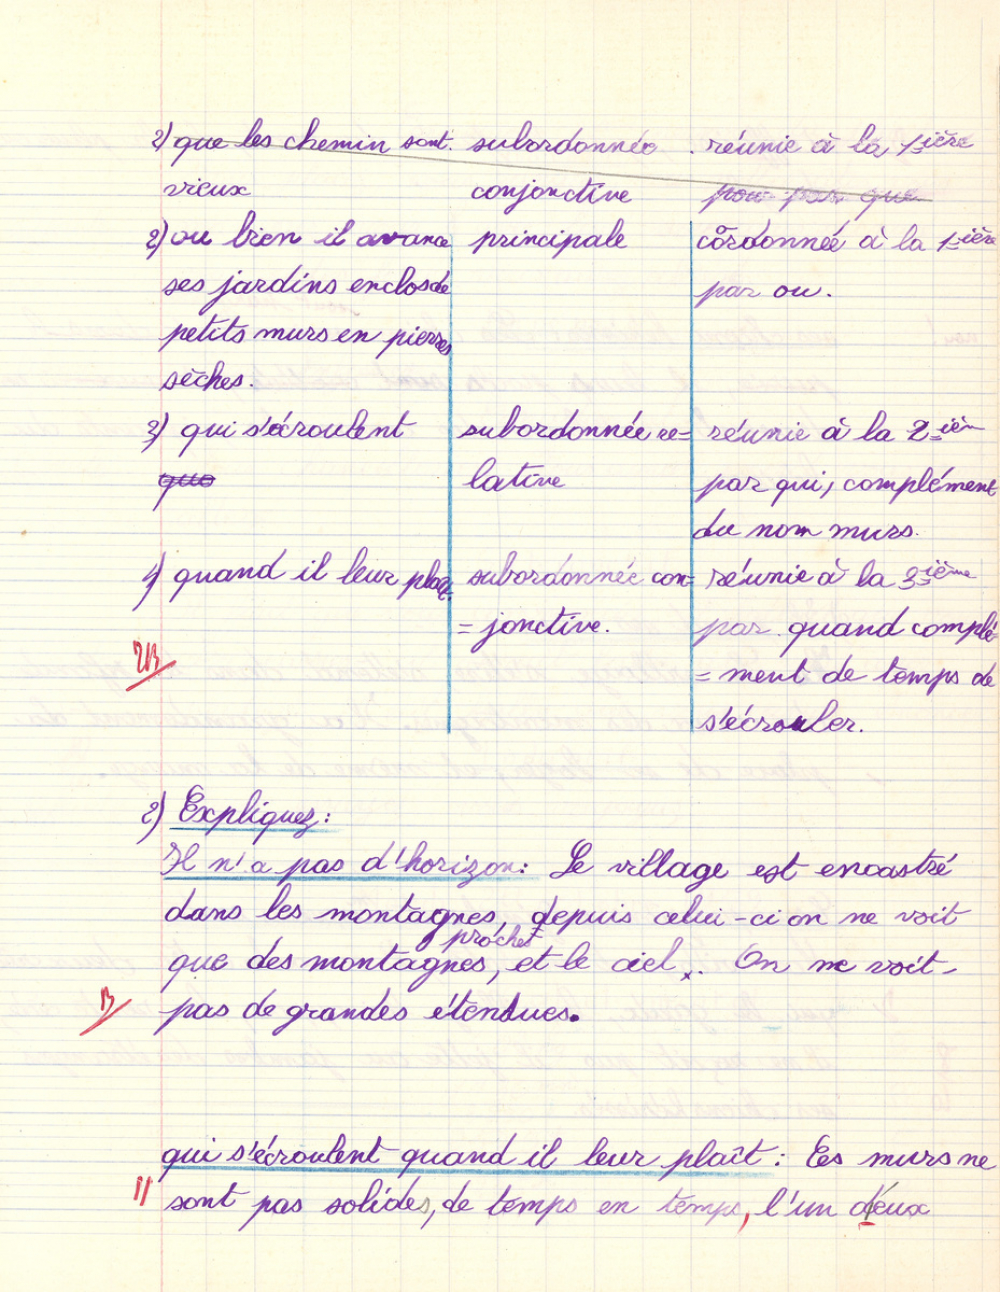 2) que les chemin sont subordonnée réunie à la 1ière
vieux conjonctive pour par que
2) ou bien il avance principale coordonnée à la 1ière
ses jardins enclos de par ou.
petits murs en pierres
sèches.
3) qui s'écroulent subordonnée re= réunie à la 2ièm
que lative par qui, complément
du nom murs.
4) quand il leur plaît subordonnée con= réunie à la 3ième
= jonctive. par quand complé
TB = ment de temps de
s'écrouler.
2) Expliquez :
Il n'a pas d'horizon : Le village est encastré
dans les montagnes, depuis celui-ci on ne voit
proches
que des montagnes, et le ciel. On ne voit
B pas de grandes étendues.
qui s'écroulent quand il leur plaît : Les murs ne
sont pas solides, de temps en temps, l'un d'eux